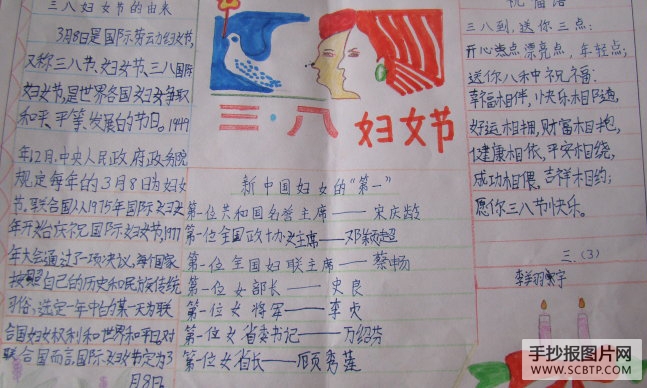 三八妇女节的由来
3月8日是国际劳动妇女节,
又称三八节、妇女节、三八国际
妇女节,是世界各国妇女争取
和平、平等、发展的节日。1949
年12月,中央人民政府政务院
规定每年的3月8日为妇女
节。联合国从1975年国际妇女
年开始庆祝国际妇女节,1977
年大会通过了一项决议,每个国家
按照自己的历史和民族传统
习俗,选定一年中的某一天为联
合国妇女权利和世界和平日。对
联合国而言,国际妇女节定为3
月8日。
三·八
妇女节
新中国妇女的“第一”
第一位共和国名誉主席——宋庆龄
第一位全国政协女主席——邓颖超
第一位全国妇联主席——蔡畅
第一位女部长——史良
第一位女将军——李贞
第一位女省委书记——万绍芬
第一位女省长——顾秀莲
祝福语
三八到,送你三点:
开心点漂亮点,年轻点;
送你八种祝福:
幸福相伴,快乐相随,
好运相拥,财富相抱,
健康相依,平安相绕,
成功相偎,吉祥相约;
愿你三八节快乐。
三.(3)
手抄报图片网
WWW.SCBTP.COM